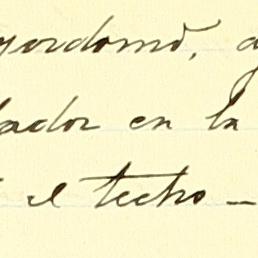 yordomo, a
lador en la
el techo —